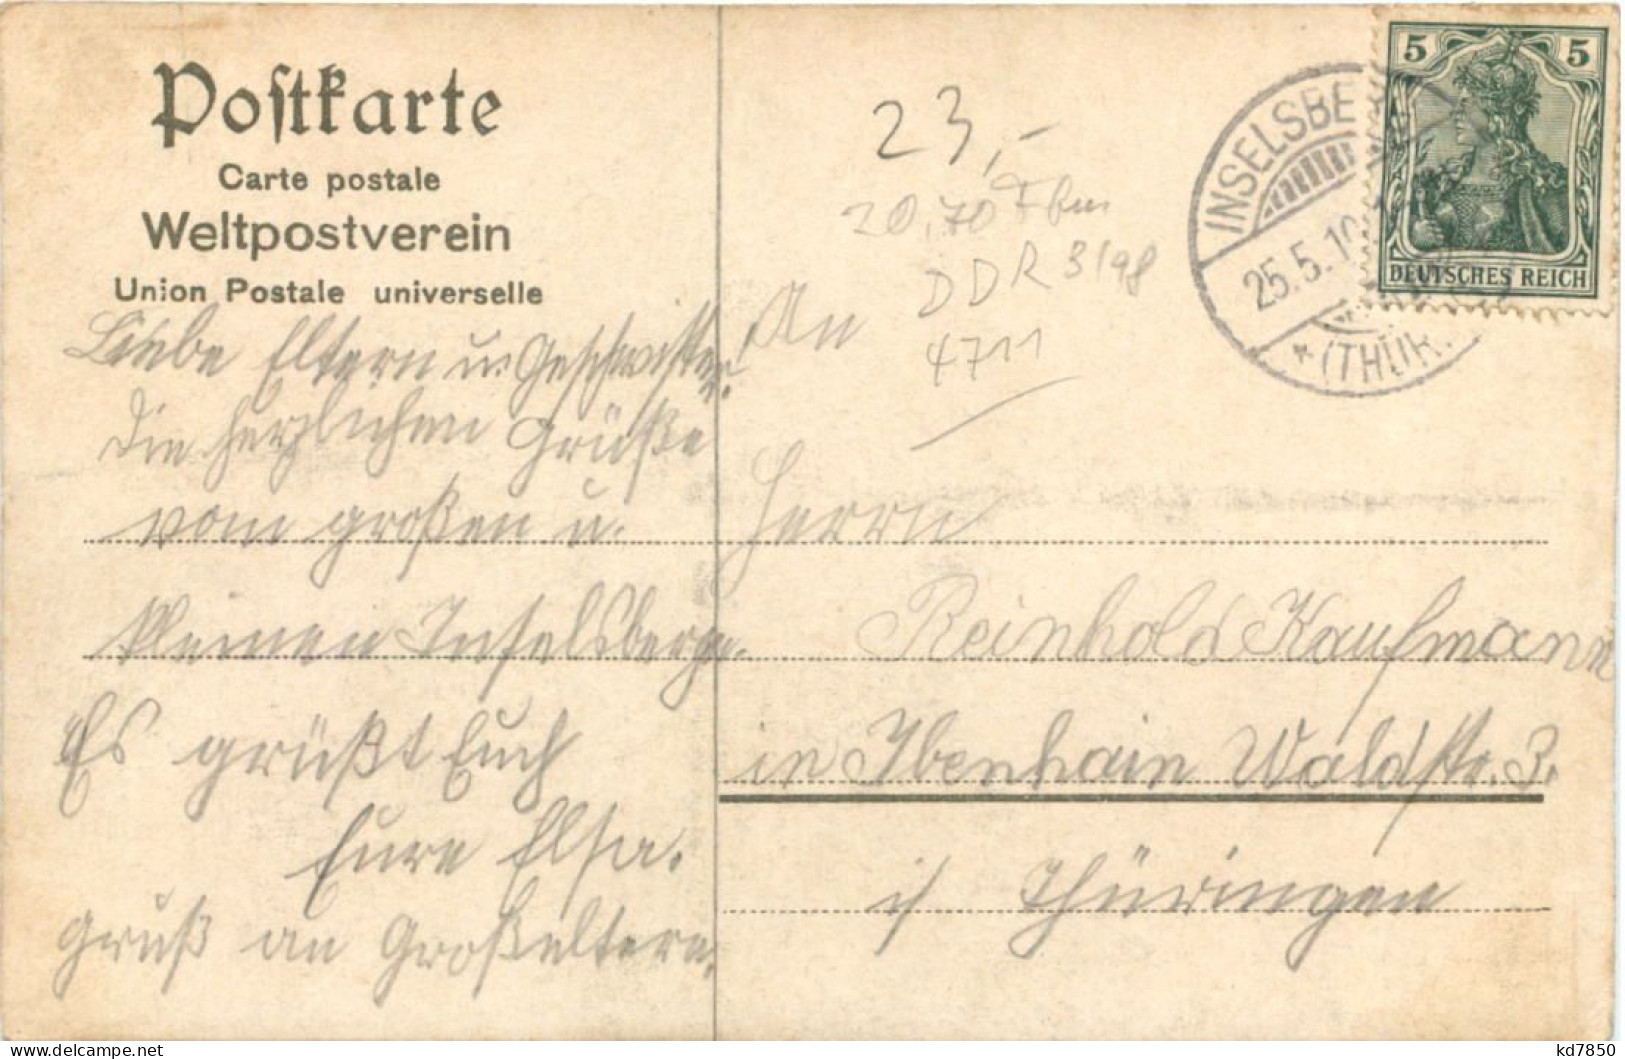 Postkarte
Carte postale
Weltpostverein
Union Postale universelle
Liebe Eltern u. Geschwister!
Die herzlichen Grüße
vom großen u.
kleinen Inselsberge.
Es grüßt Euch
Eure Elsa.
Gruß an Großeltern.
23,-
20,70
DDR 3/98
4711
INSELSBE
25.5.10
* (THÜR.
5 5
DEUTSCHES REICH
An
Herrn
Reinhold Kaufmann
in Ibenhain Waldstr. 3.
i/ Thüringen
kd7850